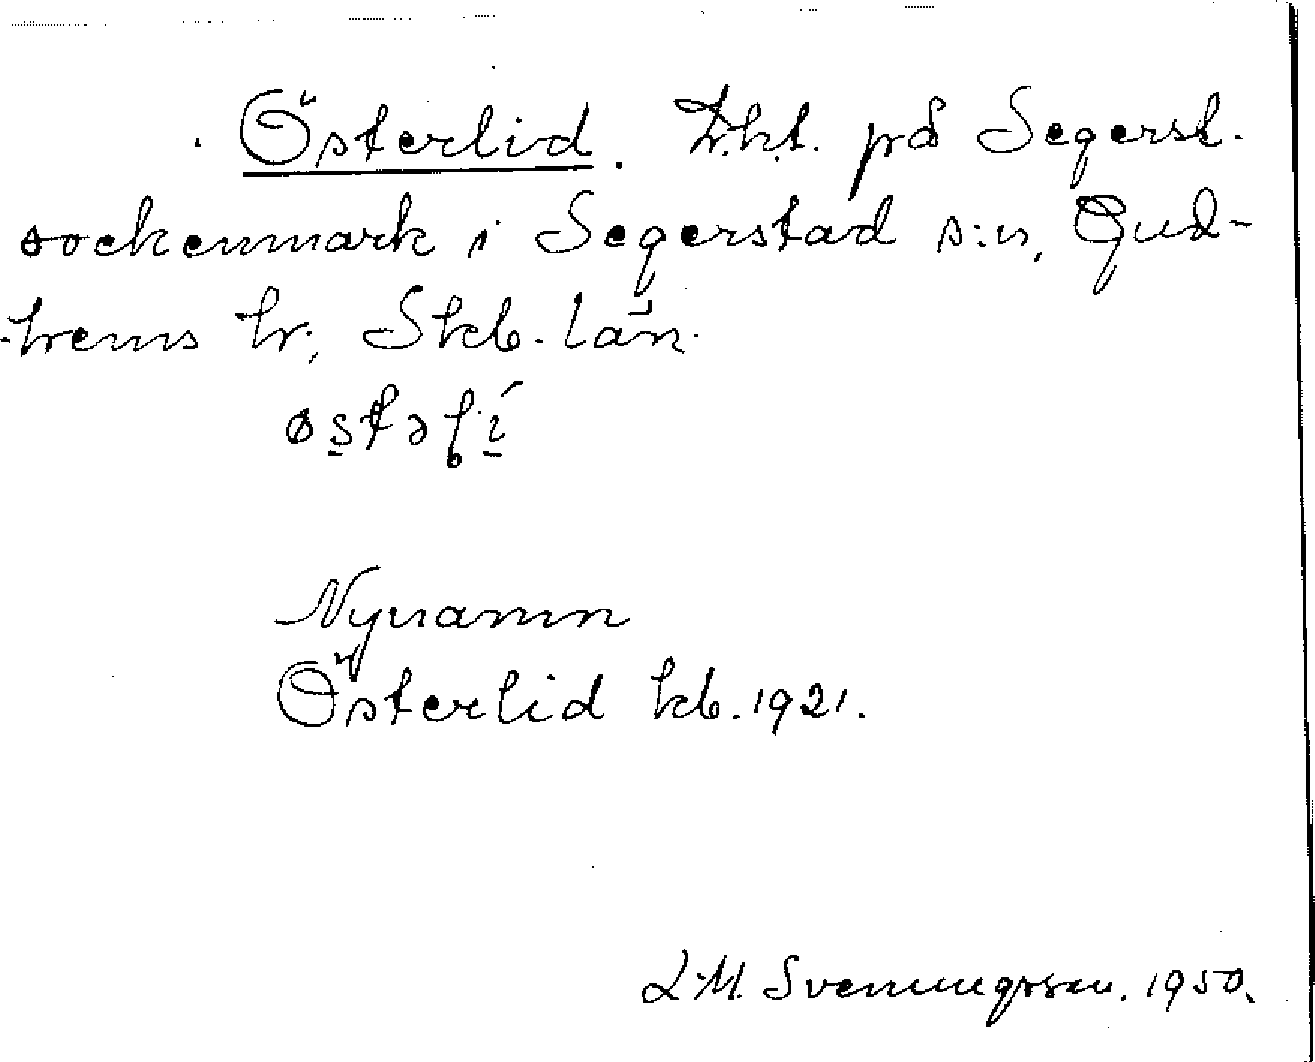 Österlid. Lht. på Segerst.
sockenmark i Segerstad s:n, Gud-
hems hr, Skb. län.
østəlí
Nynamn
Österlid kb. 1921.
L.M. Svenungsson. 1950.